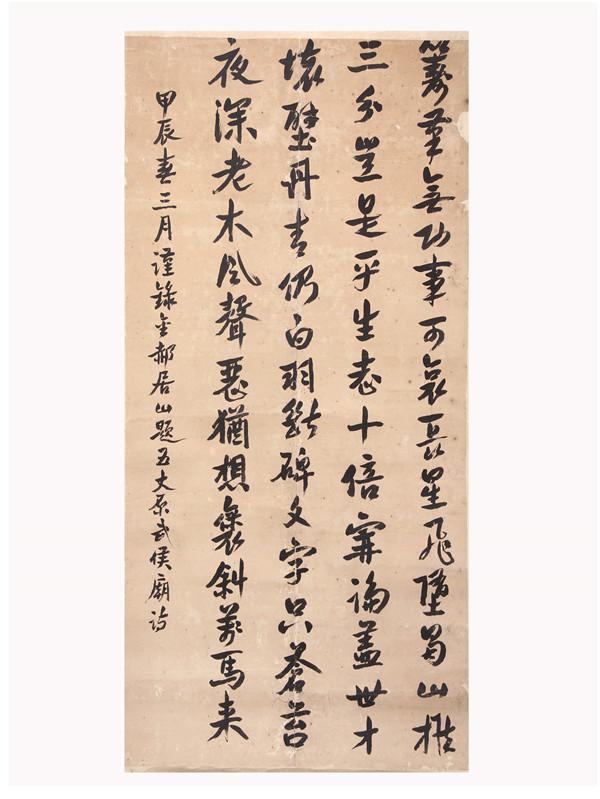 籌筆無功事可哀長星飛墮蜀山摧
三分豈是平生志十倍寧論蓋世才
壞壁丹青仍白羽斷碑文字只蒼苔
夜深老木風聲惡猶想褒斜萬馬来
甲辰春三月謹錄金郝居山題五丈原武侯廟詩